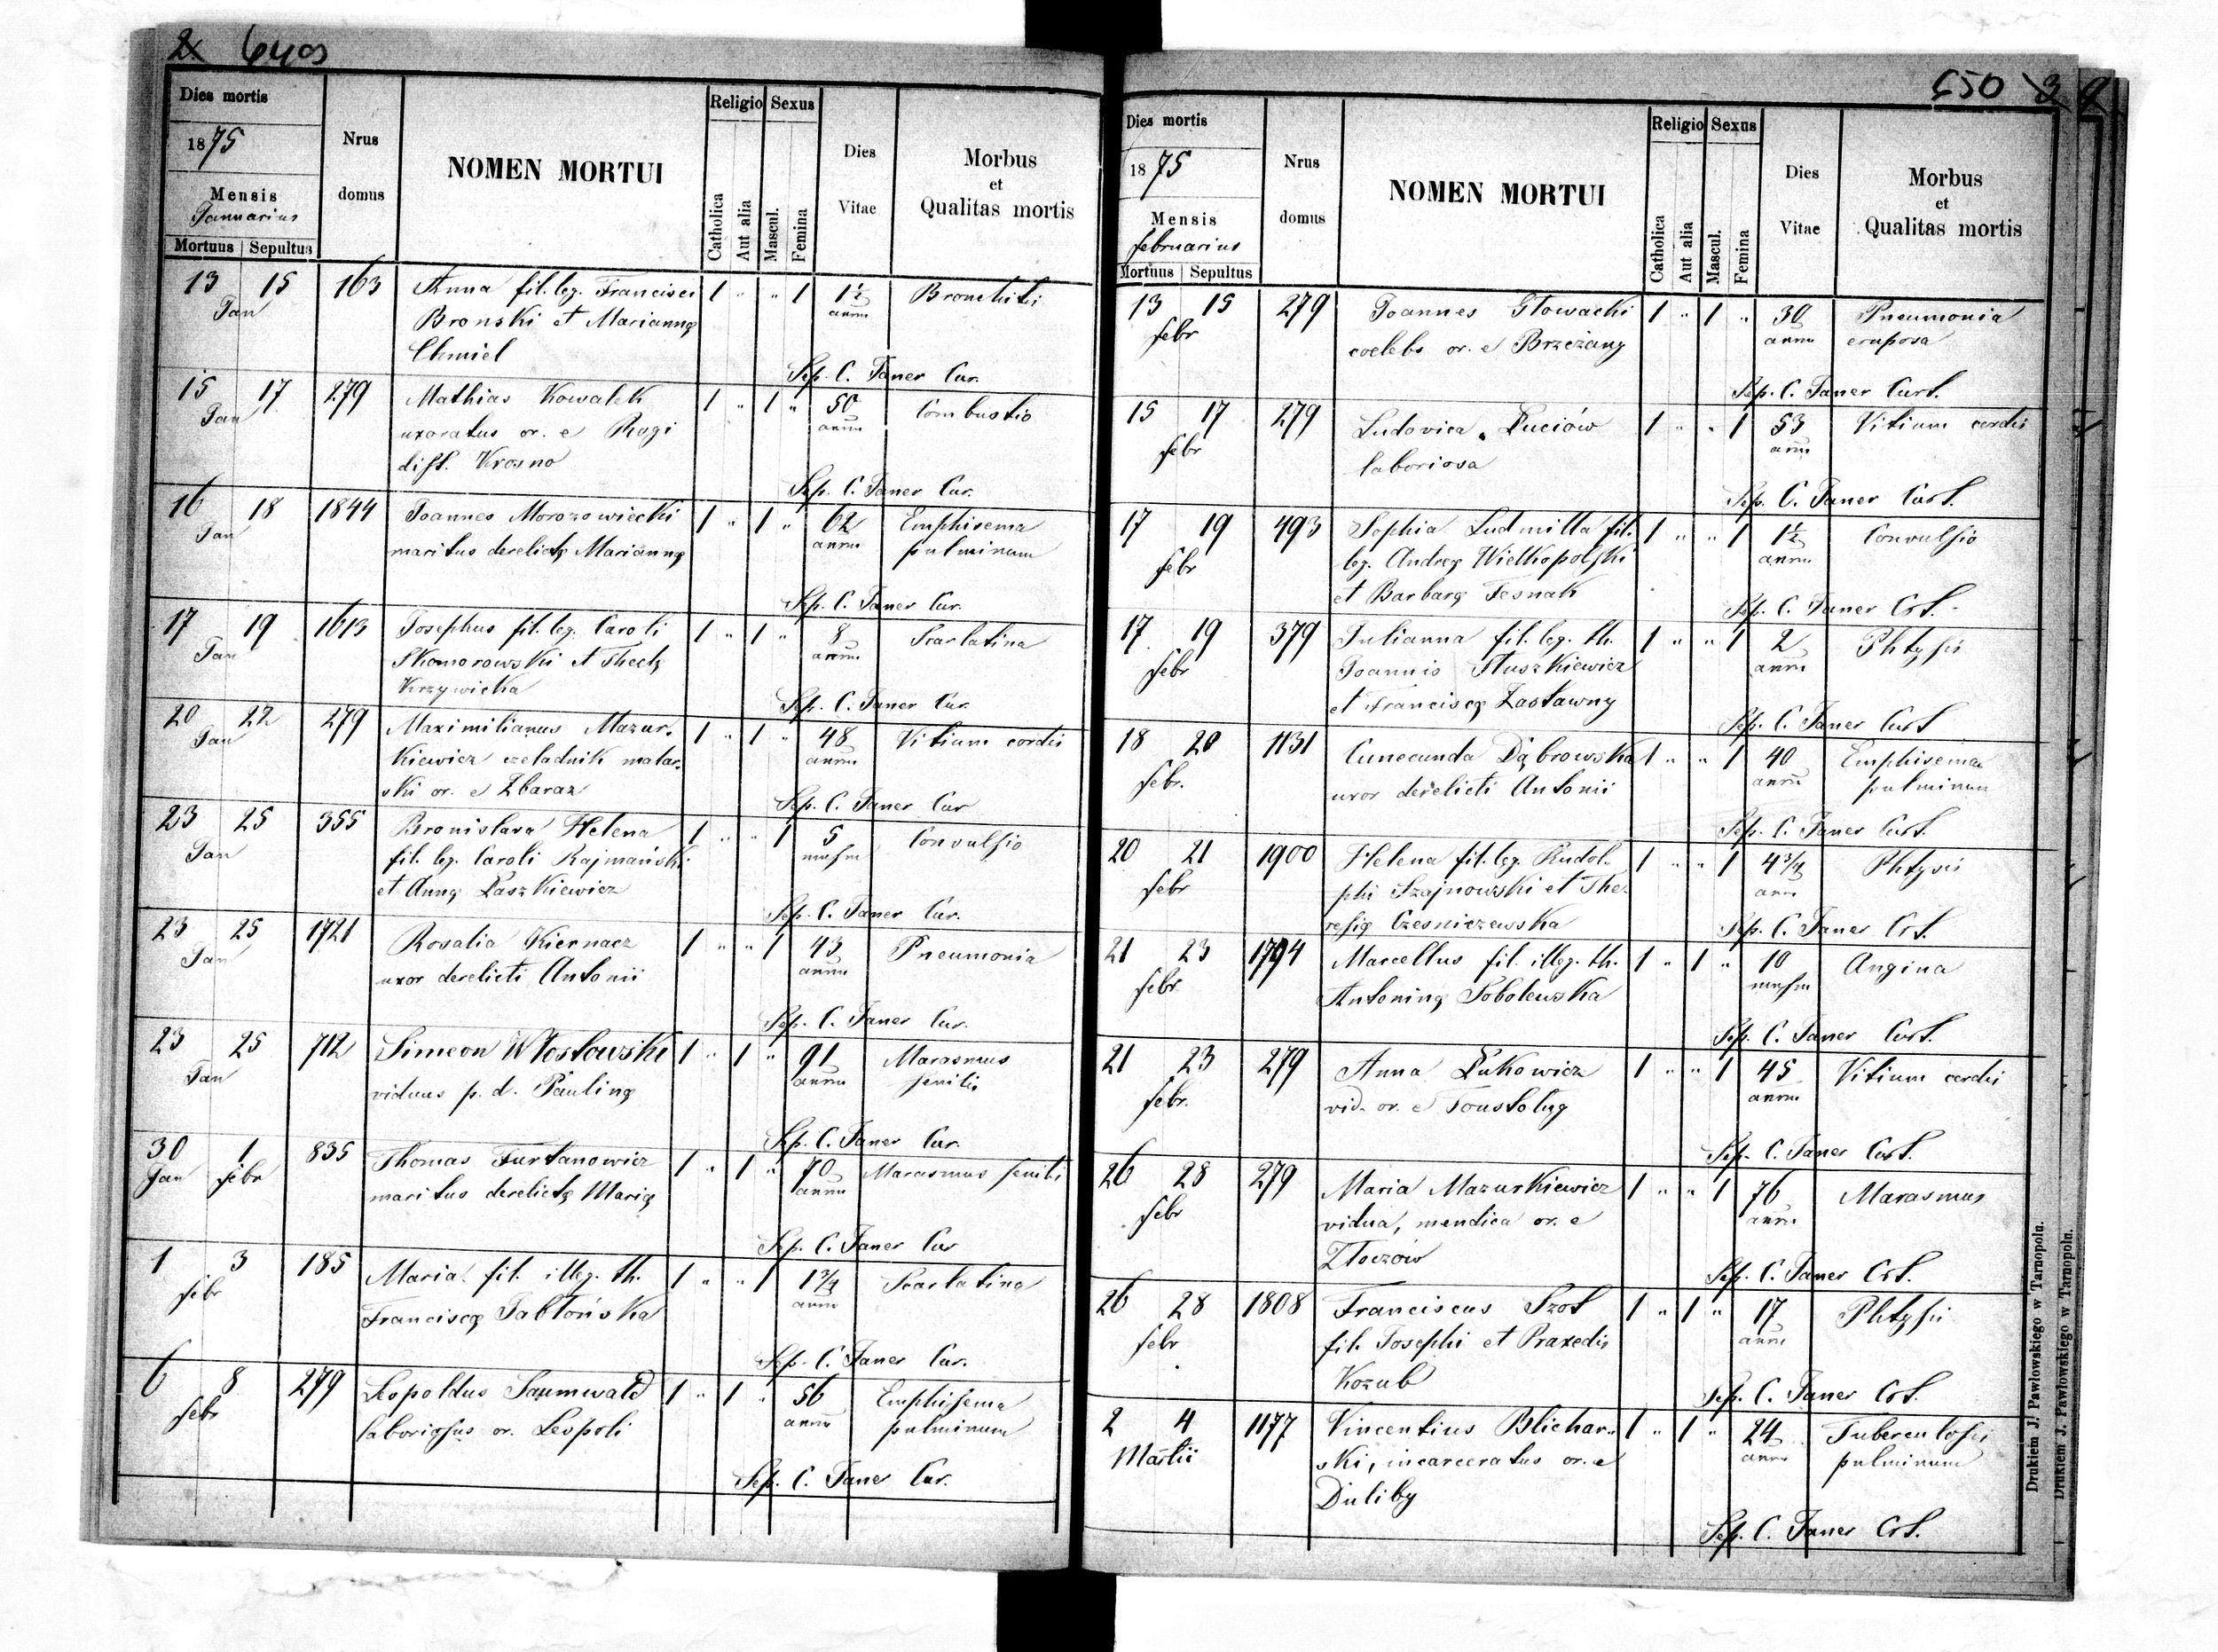 2 649
Dies mortis
1875
Mensis
Januarius
Mortuus Sepultus
Nrus domus
NOMEN MORTUI
Religio Sexus
Catholica Aut alia Mascul. Femina
Dies Vitae
Morbus
et
Qualitas mortis
13 15 163 Anna fil. leg. Francisci 1 " " 1 1½ Bronchitis
Jan Bronski et Mariannę annu
Chmiel
Sep. C. Janer Cur.
15 17 279 Mathias Kowalek 1 " 1 " 50 Combustio
Jan uxoratus or. e Rogi annu
dist. Krosno
Sep. C. Janer Cur.
16 18 1844 Joannes Morozowiecki 1 " 1 " 62 Emphisema
Jan maritus derelictę Mariannę annu pulminum
Sep. C. Janer Cur.
17 19 1613 Josephus fil. leg. Caroli 1 " 1 " 8 Scarlatina
Jan Skomorowski et Theclę annu
Krzywicka
Sep. C. Janer Cur.
20 22 279 Maximilianus Mazur- 1 " 1 " 48 Vitium cordis
Jan kiewicz czeladnik malar- annu
ski or. e Zbaraz
Sep. C. Janer Cur
23 25 355 Bronislava Helena 1 " " 1 5 Convulsio
Jan fil. leg. Caroli Rajmański mensm
et Annę Paszkiewicz
Sep. C. Janer Cur.
23 25 1721 Rosalia Kiernacz 1 " " 1 43 Pneumonia
Jan uxor derelicti Antonii annu
Sep. C. Janer Cur.
23 25 712 Simeon Włosłowski 1 " 1 " 91 Marasmus
Jan viduus p. d. Paulinę annu senilis
Sep. C. Janer Cur.
30 1 835 Thomas Furtanowicz 1 " 1 " 70 Marasmus senilis
Jan febr maritus derelictę Marię annu
Sep. C. Janer Cur
1 3 185 Maria fil. illeg. th. 1 " " 1 1¾ Scarlatina
febr Franciscę Jabłońska annu
Sep. C. Janer Cur.
6 8 279 Leopoldus Saumwald 1 " 1 " 56 Emphisema
febr laboriosus or. Leopoli annu pulminum
Sep. C. Janer Cur.
650 3
Dies mortis
1875
Mensis
februarius
Mortuus Sepultus
Nrus domus
NOMEN MORTUI
Religio Sexus
Catholica Aut alia Mascul. Femina
Dies Vitae
Morbus
et
Qualitas mortis
13 15 279 Joannes Głowacki 1 " 1 " 30 Pneumonia
febr coelebs or. e Brzeżany annu cruposa
Sep. C. Janer Curt.
15 17 279 Ludovica Łuciów 1 " " 1 53 Vitium cordis
febr laboriosa annu
Sep. C. Janer Curt.
17 19 493 Sophia Ludmilla fil. 1 " " 1 1½ Convulsio
febr leg. Andreę Wielkopolski annu
et Barbarę Tesnak
Sep. C. Janer Crt.
17 19 379 Julianna fil. leg. th. 1 " " 1 2 Phtysis
febr Joannis Słuszkiewicz annu
et Franciscę Zastawny
Sep. C. Janer Curt
18 20 1131 Cunecunda Dąbrowska 1 " " 1 40 Emphisema
febr. uxor derelicti Antonii annu pulminum
Sep. C. Janer Curt.
20 21 1900 Helena fil. leg. Rudol- 1 " " 1 4¾ Phtysis
febr phi Szajnowski et The- annu
resię Czesniczewska
Sep. C. Janer Crt.
21 23 1794 Marcellus fil. illeg. th. 1 " 1 " 10 Angina
febr. Antoninę Sobolewska mensm
Sep. C. Janer Curt.
21 23 279 Anna Łukowicz 1 " " 1 45 Vitium cordis
febr. vid. or. e Toustoług annu
Sep. C. Janer Curt.
26 28 279 Maria Mazurkiewicz 1 " " 1 76 Marasmus
febr vidua, mendica or. e annu
Złoczów
Sep. C. Janer Crt.
26 28 1808 Franciscus Szot 1 " 1 " 17 Phtysis
febr fil. Josephi et Praxedis annu
Kozub
Sep. C. Janer Crt.
2 4 1177 Vincentius Blichar- 1 " 1 " 24 Tuberculosis
Martii ski, incarceratus or. e annu pulminum
Duliby
Sep. C. Janer Crt.
Drukiem J. Pawłowskiego w Tarnopolu.
Drukiem J. Pawłowskiego w Tarnopolu.